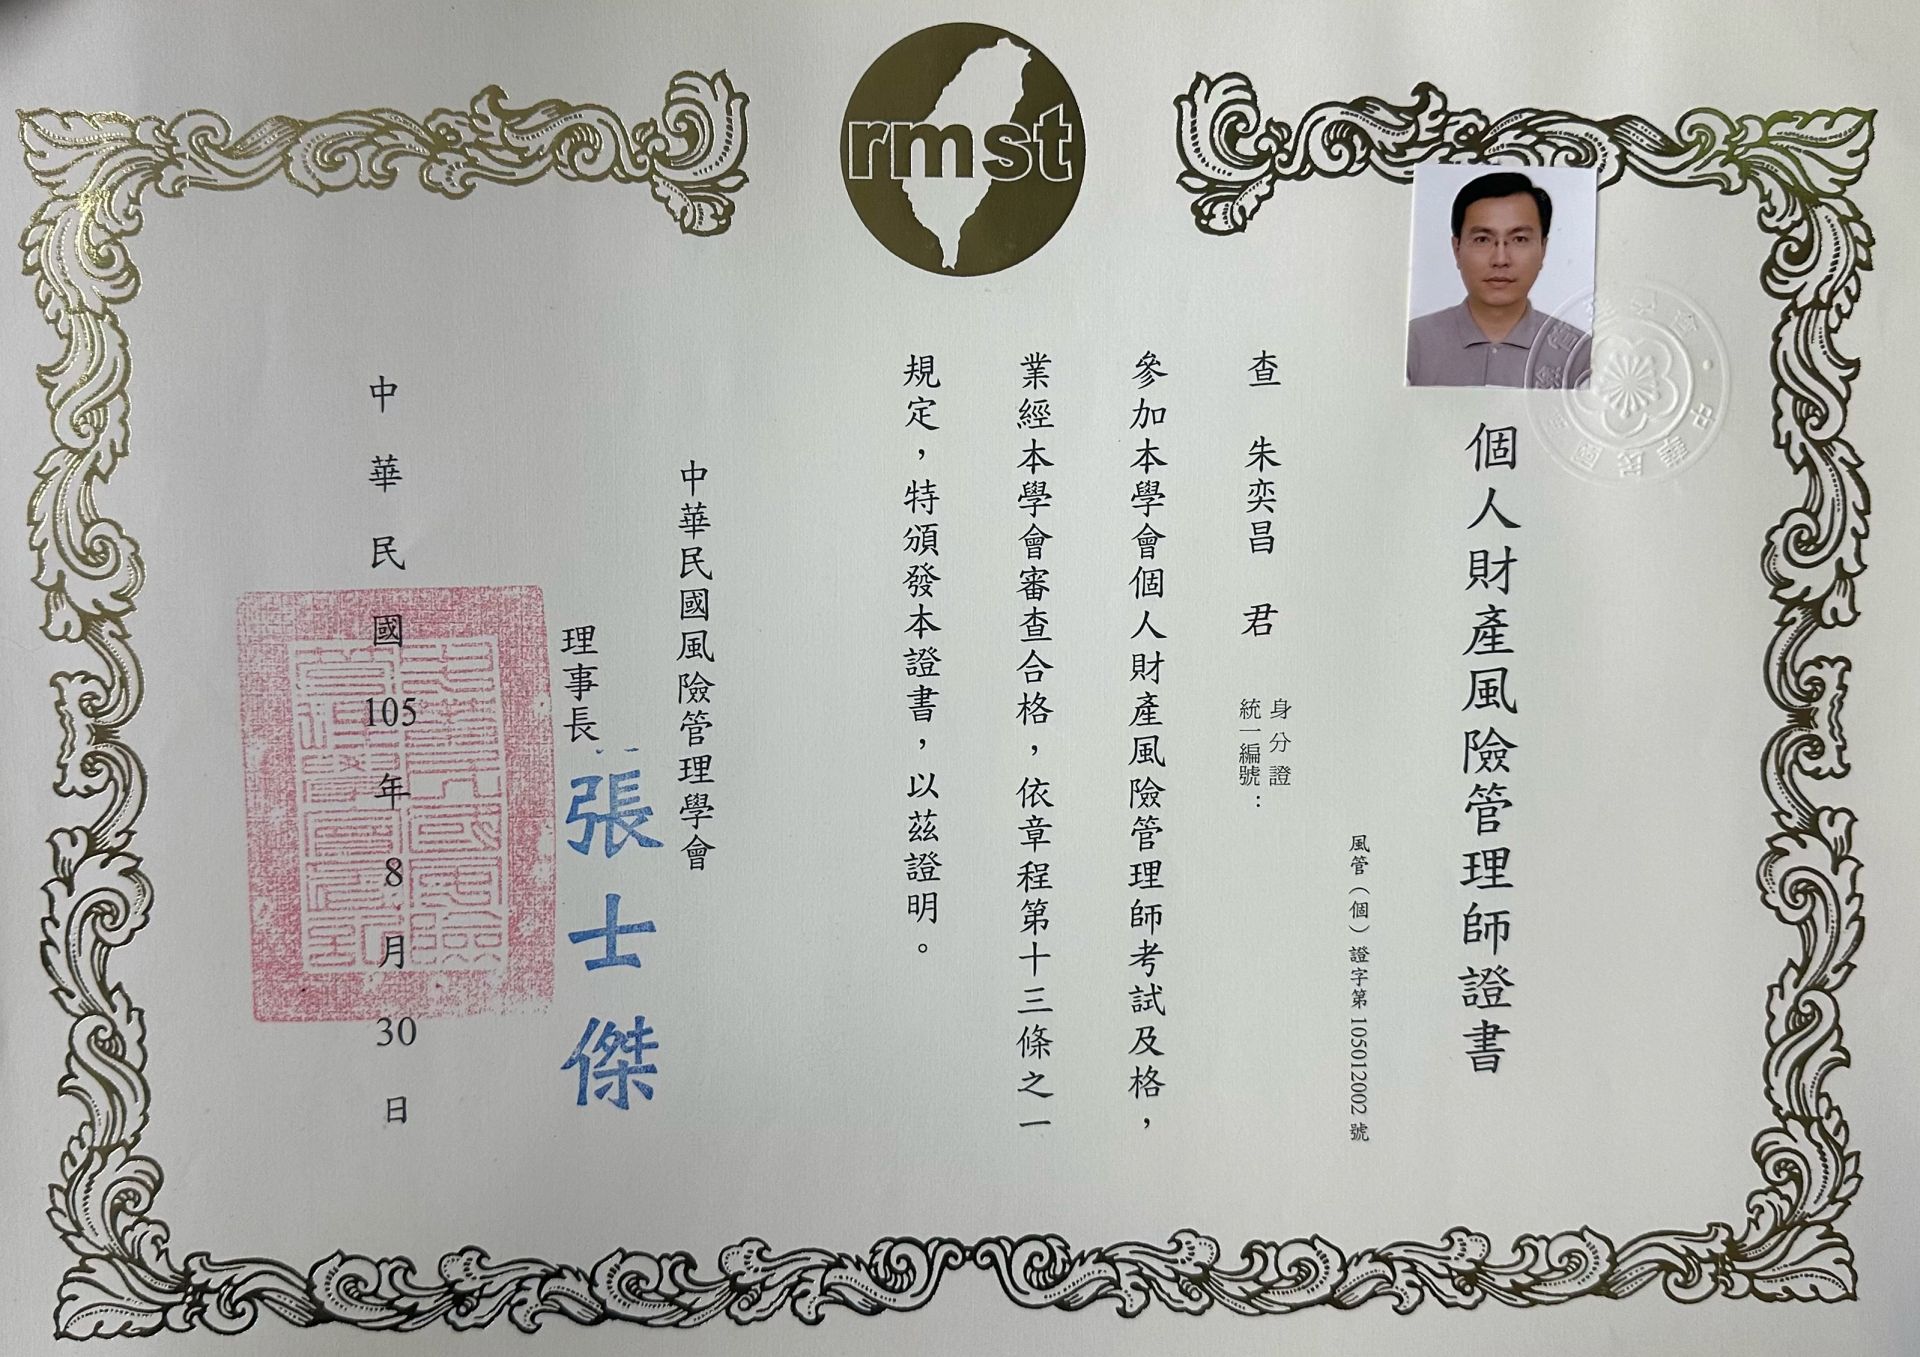 rmst
個人財產風險管理師證書
風管（個）證字第 105012002 號
查　朱奕昌　君
身分證
統一編號：
參加本學會個人財產風險管理師考試及格，
業經本學會審查合格，依章程第十三條之一
規定，特頒發本證書，以茲證明。
中華民國風險管理學會
理事長
張士傑
中華民國105年8月30日